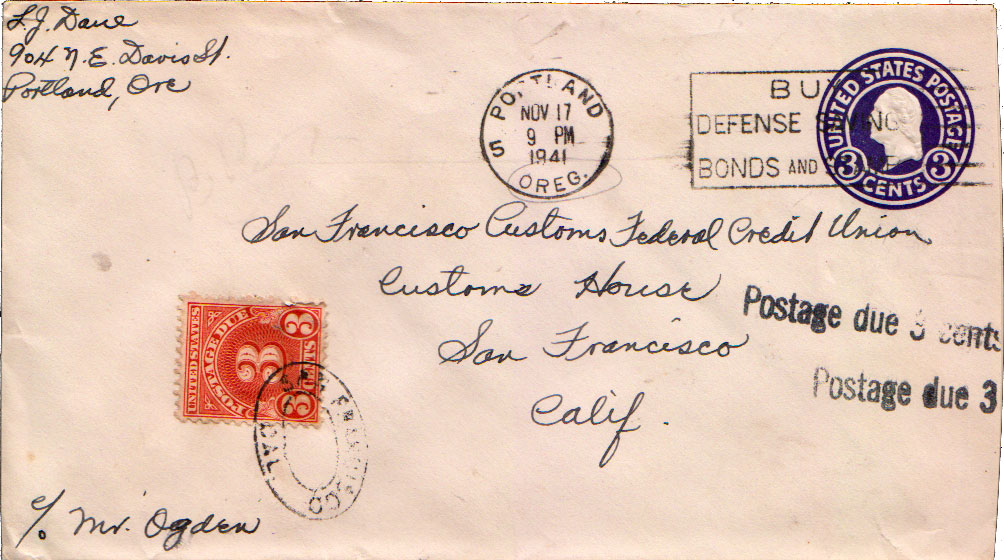 L. J. Dane
904 N. E. Davis St.
Portland, Ore
PORTLAND
NOV 17
9 PM
1941
5
OREG.
BUY
DEFENSE SAVING
BONDS AND
UNITED STATES POSTAGE
3 CENTS 3
San Francisco Customs Federal Credit Union
Customs House
San Francisco
Calif.
Postage due 3 cents
Postage due 3
UNITED STATES
POSTAGE DUE
3
3 CENTS 3
SAN FRANCISCO
CAL.
c/o Mr. Ogden